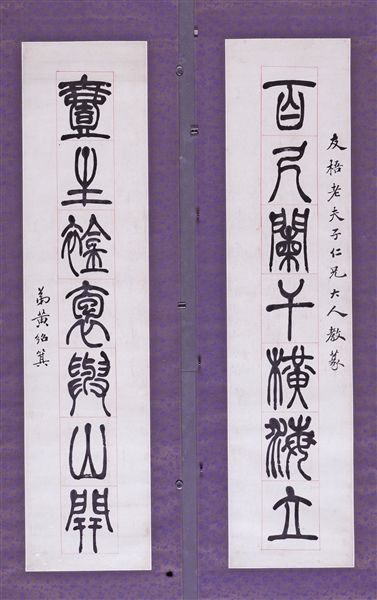 友梧老夫子仁兄大人教篆
百尺闌干橫海立
壹生襟褱與山開
弟黃紹箕